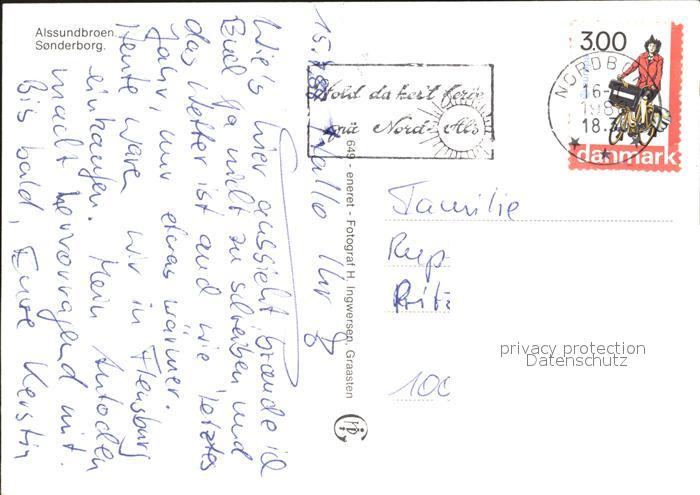 Alssundbroen.
Sønderborg.
15.7.88 Hallo Ihr 8
Wie's hier aussieht brauche ich
Euch ja nicht zu schreiben und
das Wetter ist auch wie letztes
Jahr, nur etwas wärmer.
Heute waren wir in Flensburg
einkaufen. Mein Autochen
macht hervorragend mit.
Bis bald, Eure Kerstin
649 - eneret - Fotograf H. Ingwersen, Graasten
Hold da helt ferie
på Nord-Als
NORDBO
16-
198
18.
3.00
danmark
Familie
Rup
Fritz
100
privacy protection
Datenschutz